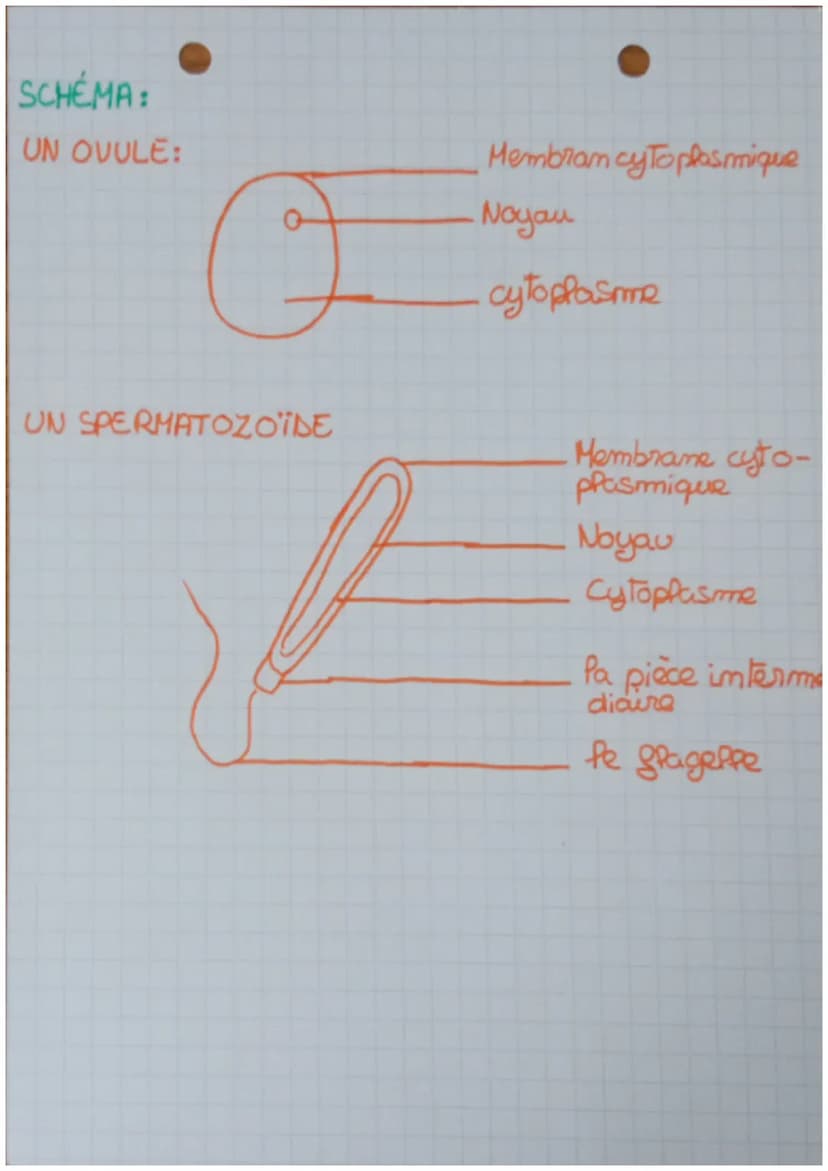 SCHÉMA:
UN OVULE:
Membran cytoplasmique
Noyau
cytoplasme
UN SPERMATOZOÏDE
Membrane cyto-
plasmique
Noyau
Cytoplasme
la pièce interme
diaire
le flagelle